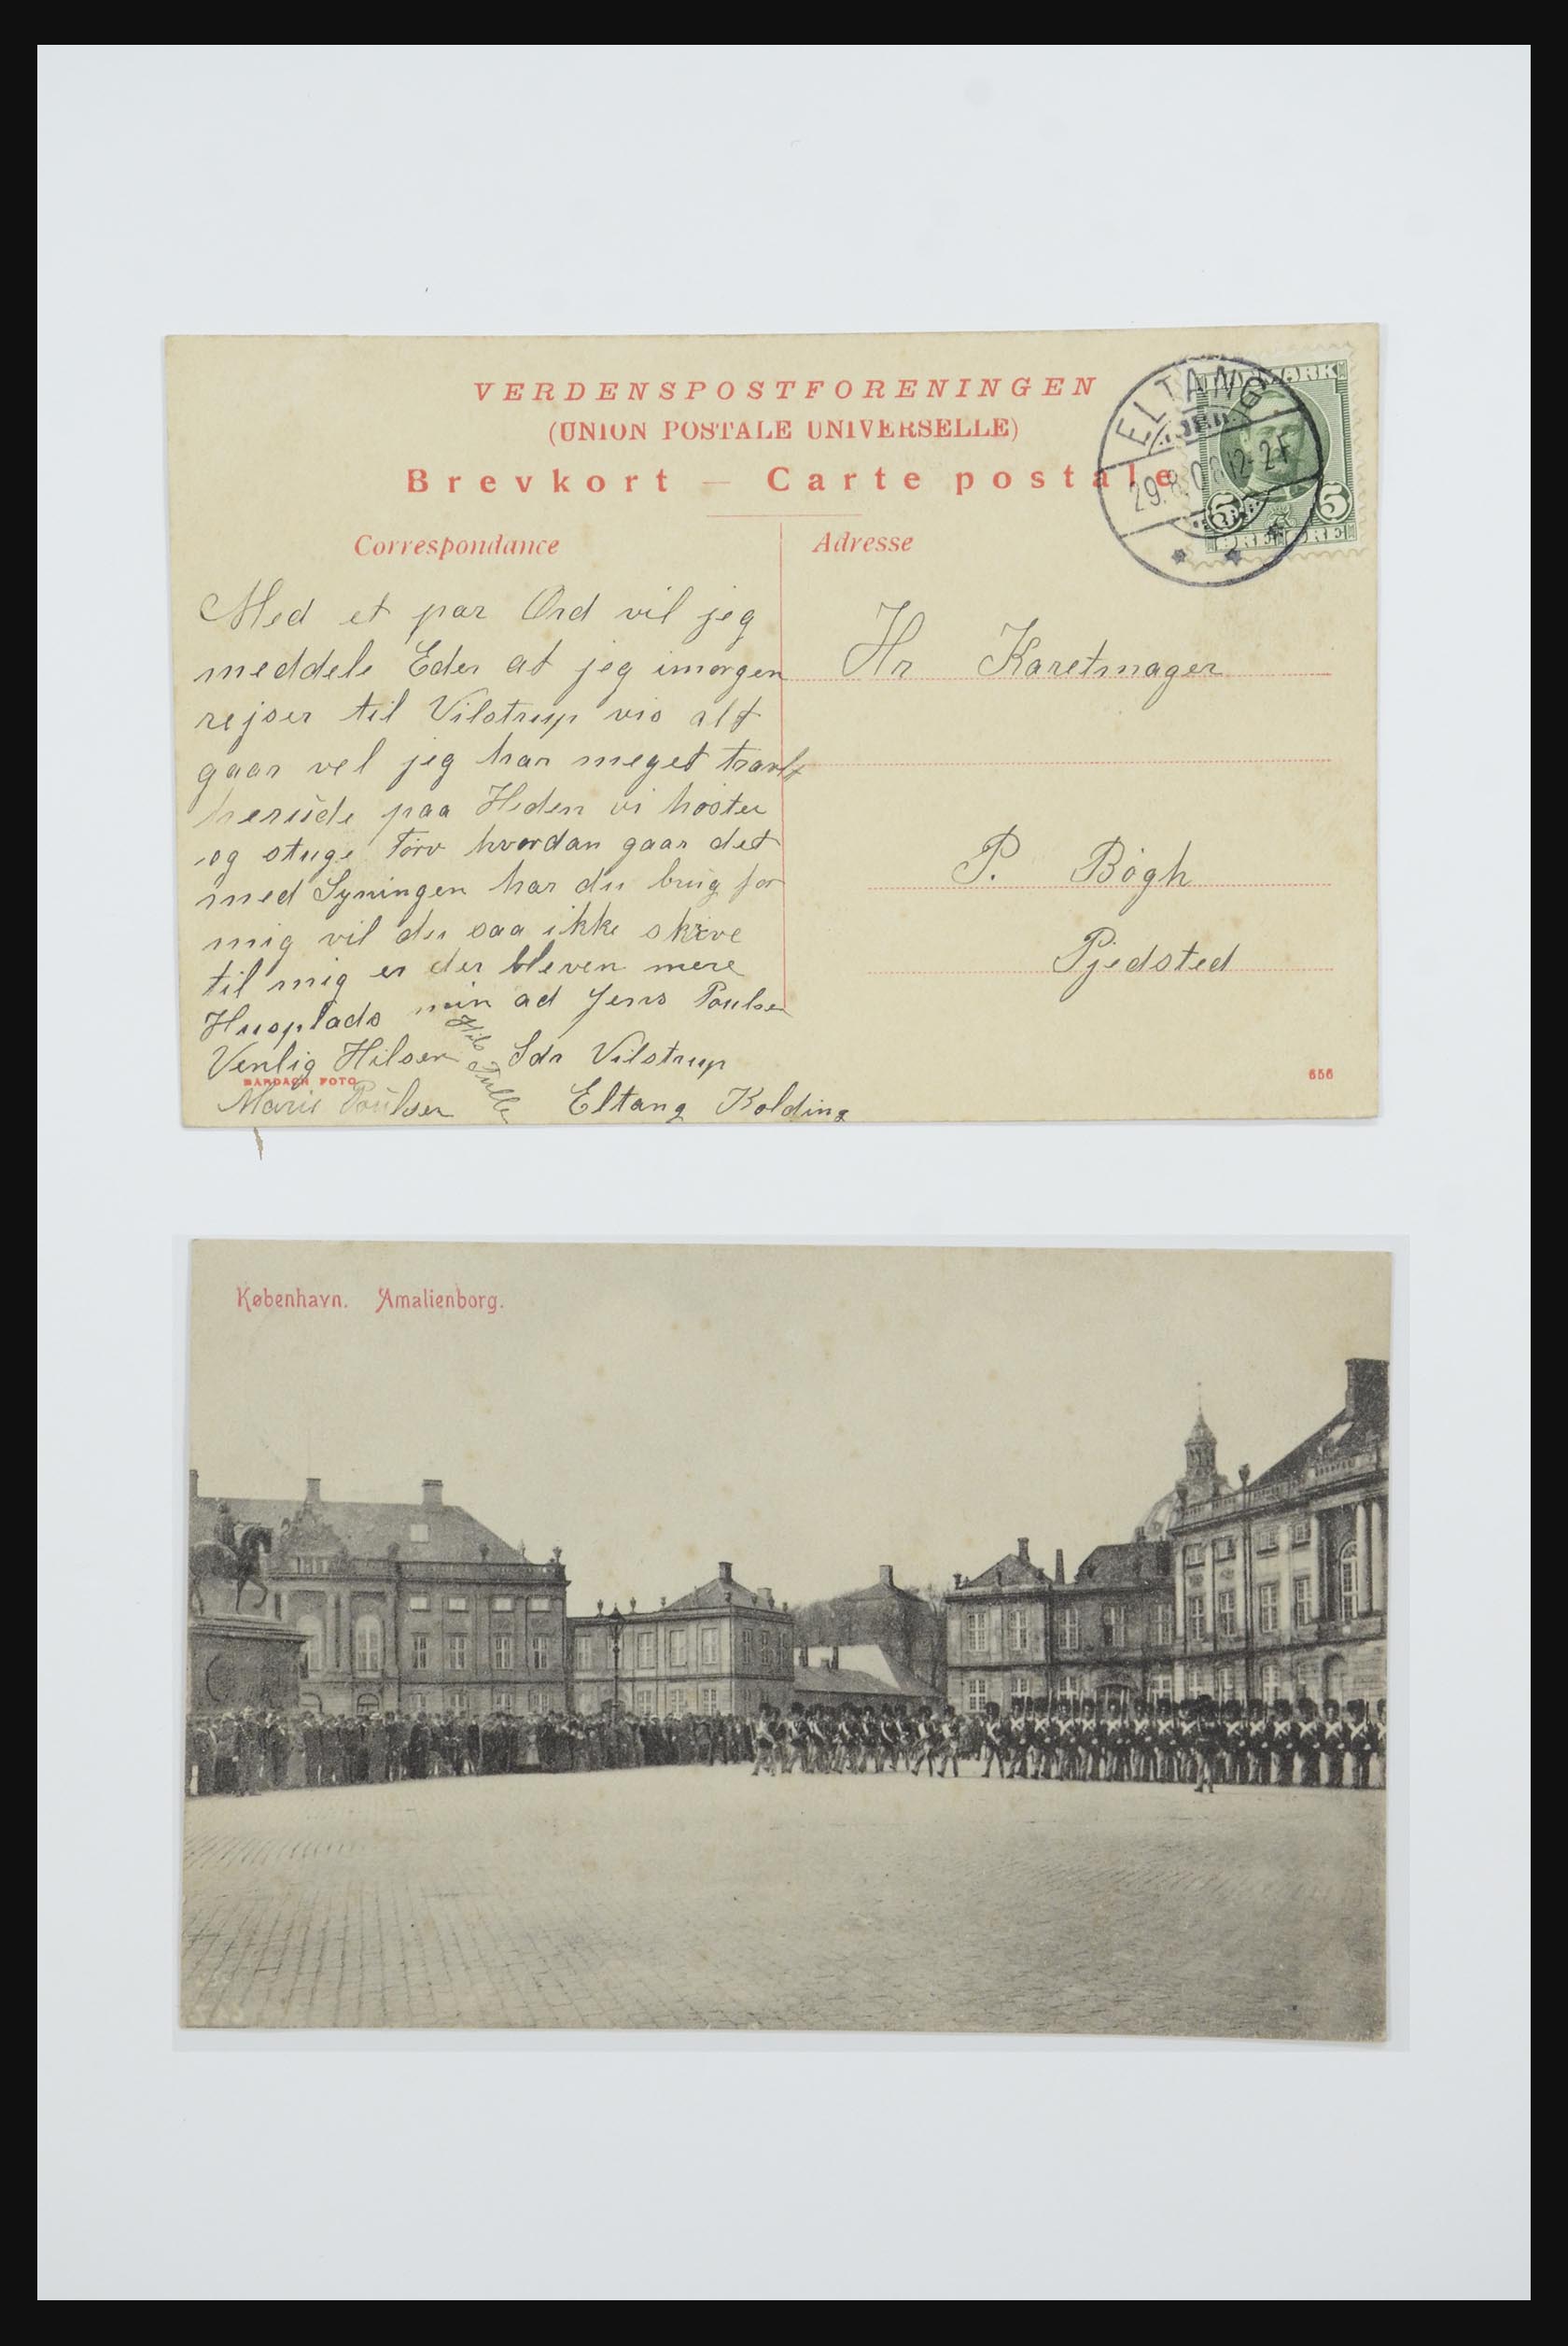 VERDENSPOSTFORENINGEN
(UNION POSTALE UNIVERSELLE)
Brevkort — Carte postale
Correspondance
Adresse
ELTANG
29.8.08 12-2F
DANMARK
5 5
ØRE ØRE
Med et par Ord vil jeg
meddele Eder at jeg imorgen
rejser til Vilstrup vis alt
gaar vel jeg har meget travlt
herude paa Heden vi høster
og stuge Törv hvordan gaar det
med Syningen har du brug for
mig vil du saa ikke skive
til mig er der bleven mere
Husplads min ad Jens Poulsen
Venlig Hilsen Sdr Vilstrup
Marie Poulsen Eltang Kolding
Hils
BARDACH FOTO
Hr Karetmager
P. Bögh
Pjedsted
656
København. Amalienborg.